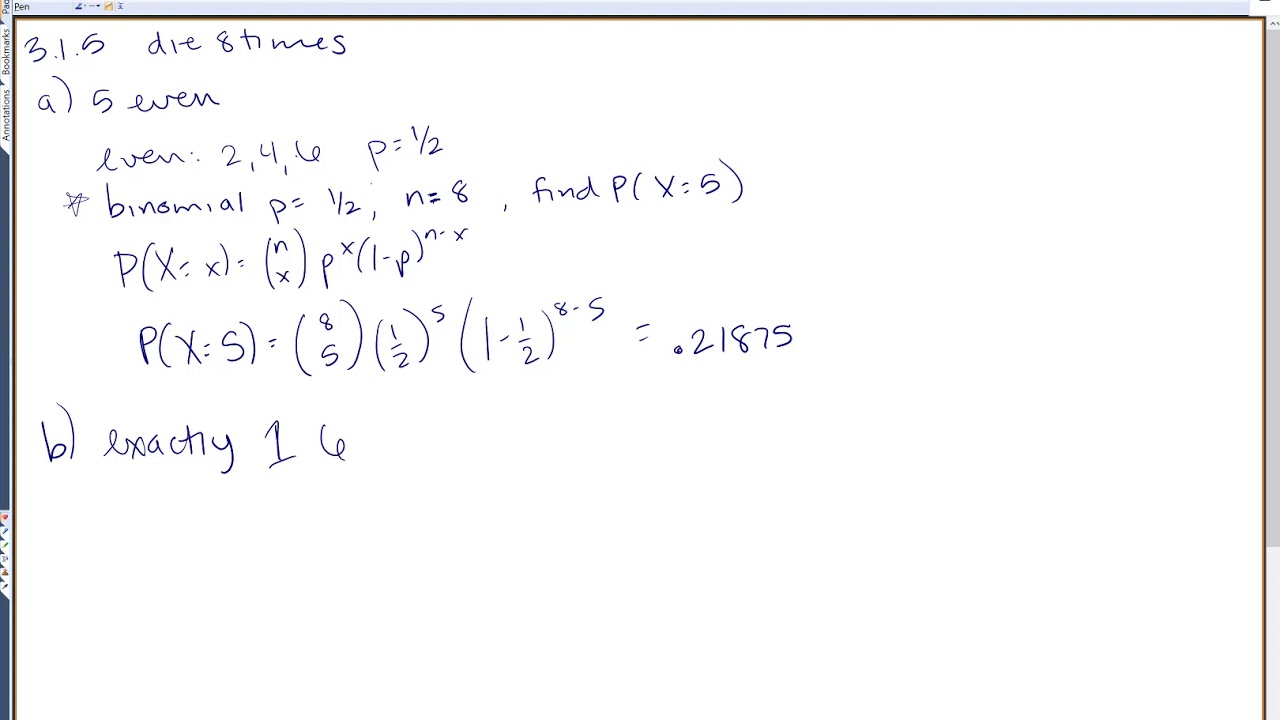 Pen
Pad
Bookmarks
Annotations
3.1.5 die 8 times
a) 5 even
even: 2, 4, 6 p = 1/2
* binomial p = 1/2, n = 8, find P(X = 5)
P(X = x) = (n x) p^x (1-p)^{n-x}
P(X = 5) = (8 5) (1/2)^5 (1 - 1/2)^{8-5} = .21875
b) exactly 1 6